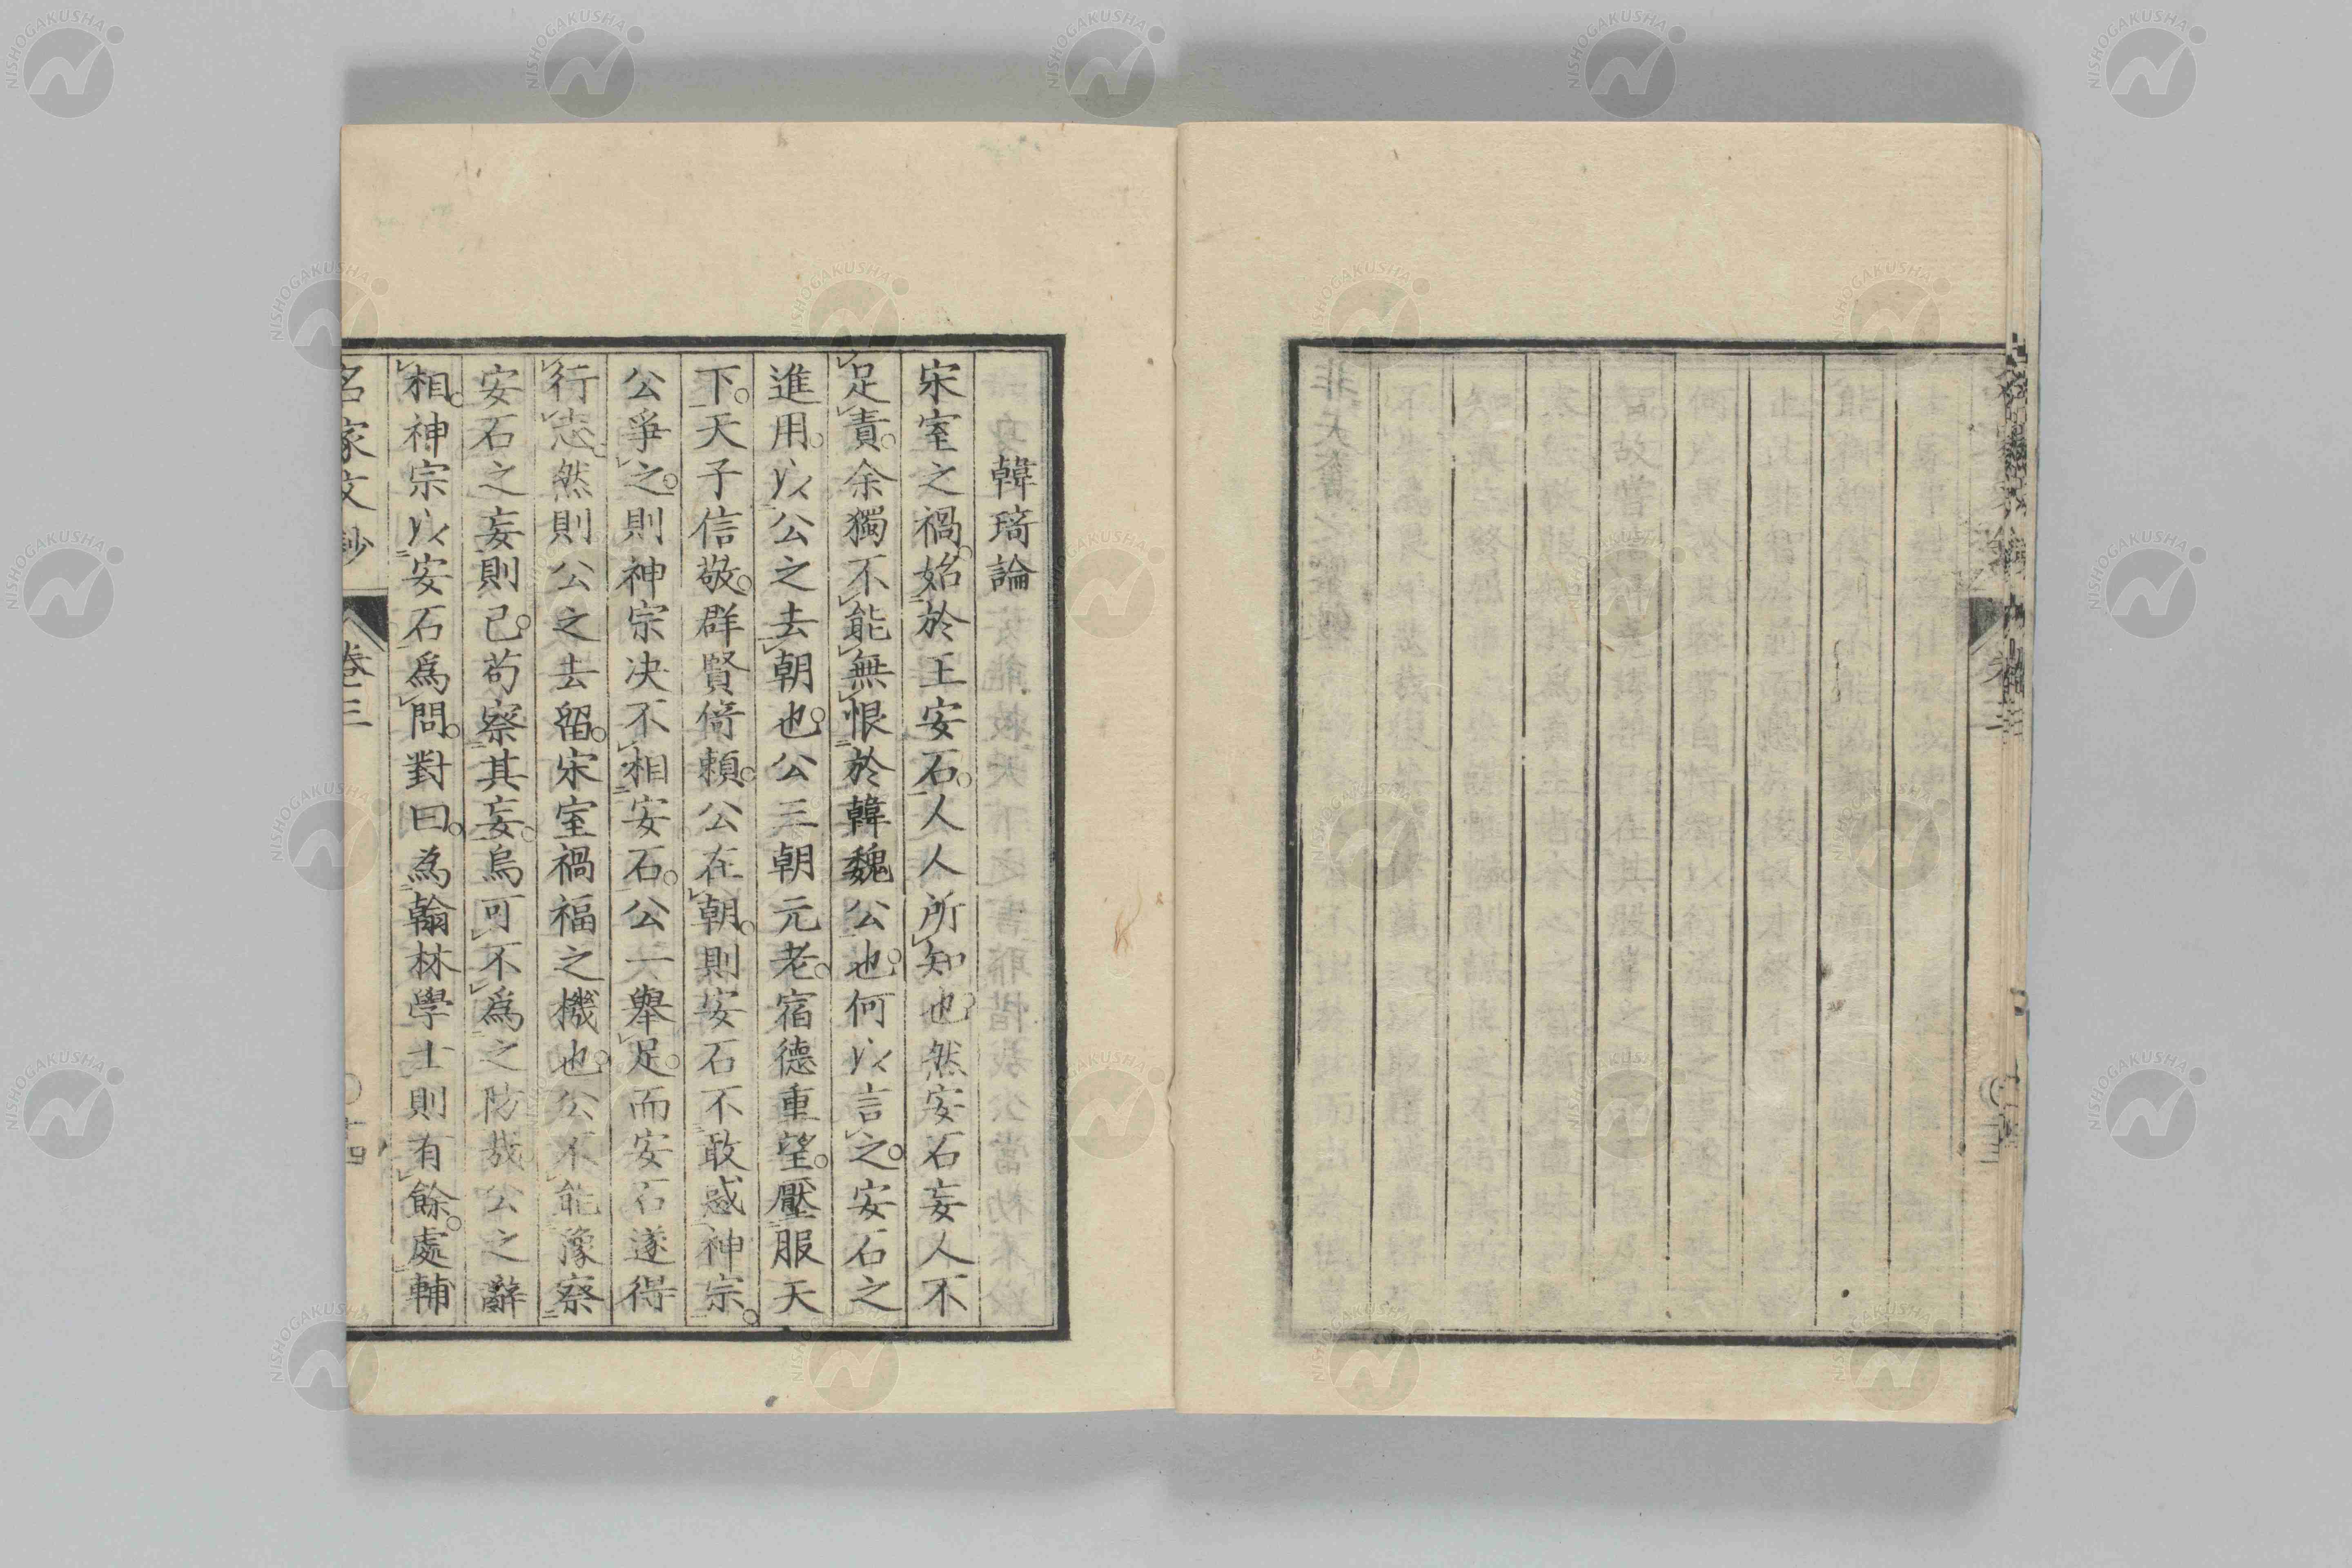 韓琦論
宋室之禍。始於王安石。人人所知也。然安石妄人不
足責。余獨不能無恨於韓魏公也。何以言之。安石之
進用。以公之去朝也。公三朝元老。宿德重望。壓服天
下。天子信敬。群賢倚賴。公在朝。則安石不敢惑神宗。
公爭之。則神宗决不相安石。公一舉足。而安石遂得
行志。然則公之去留。宋室禍福之機也。公不能豫察
安石之妄則已。苟察其妄。烏可不爲之防哉公之辭
相。神宗以安石爲問。對曰。為翰林學士則有餘。處輔
名家文鈔
卷三
十四
NISHOGAKUSHA